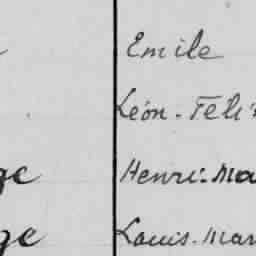 Emile
Léon-Féli
ge Henri-Ma
ge Louis-Mar